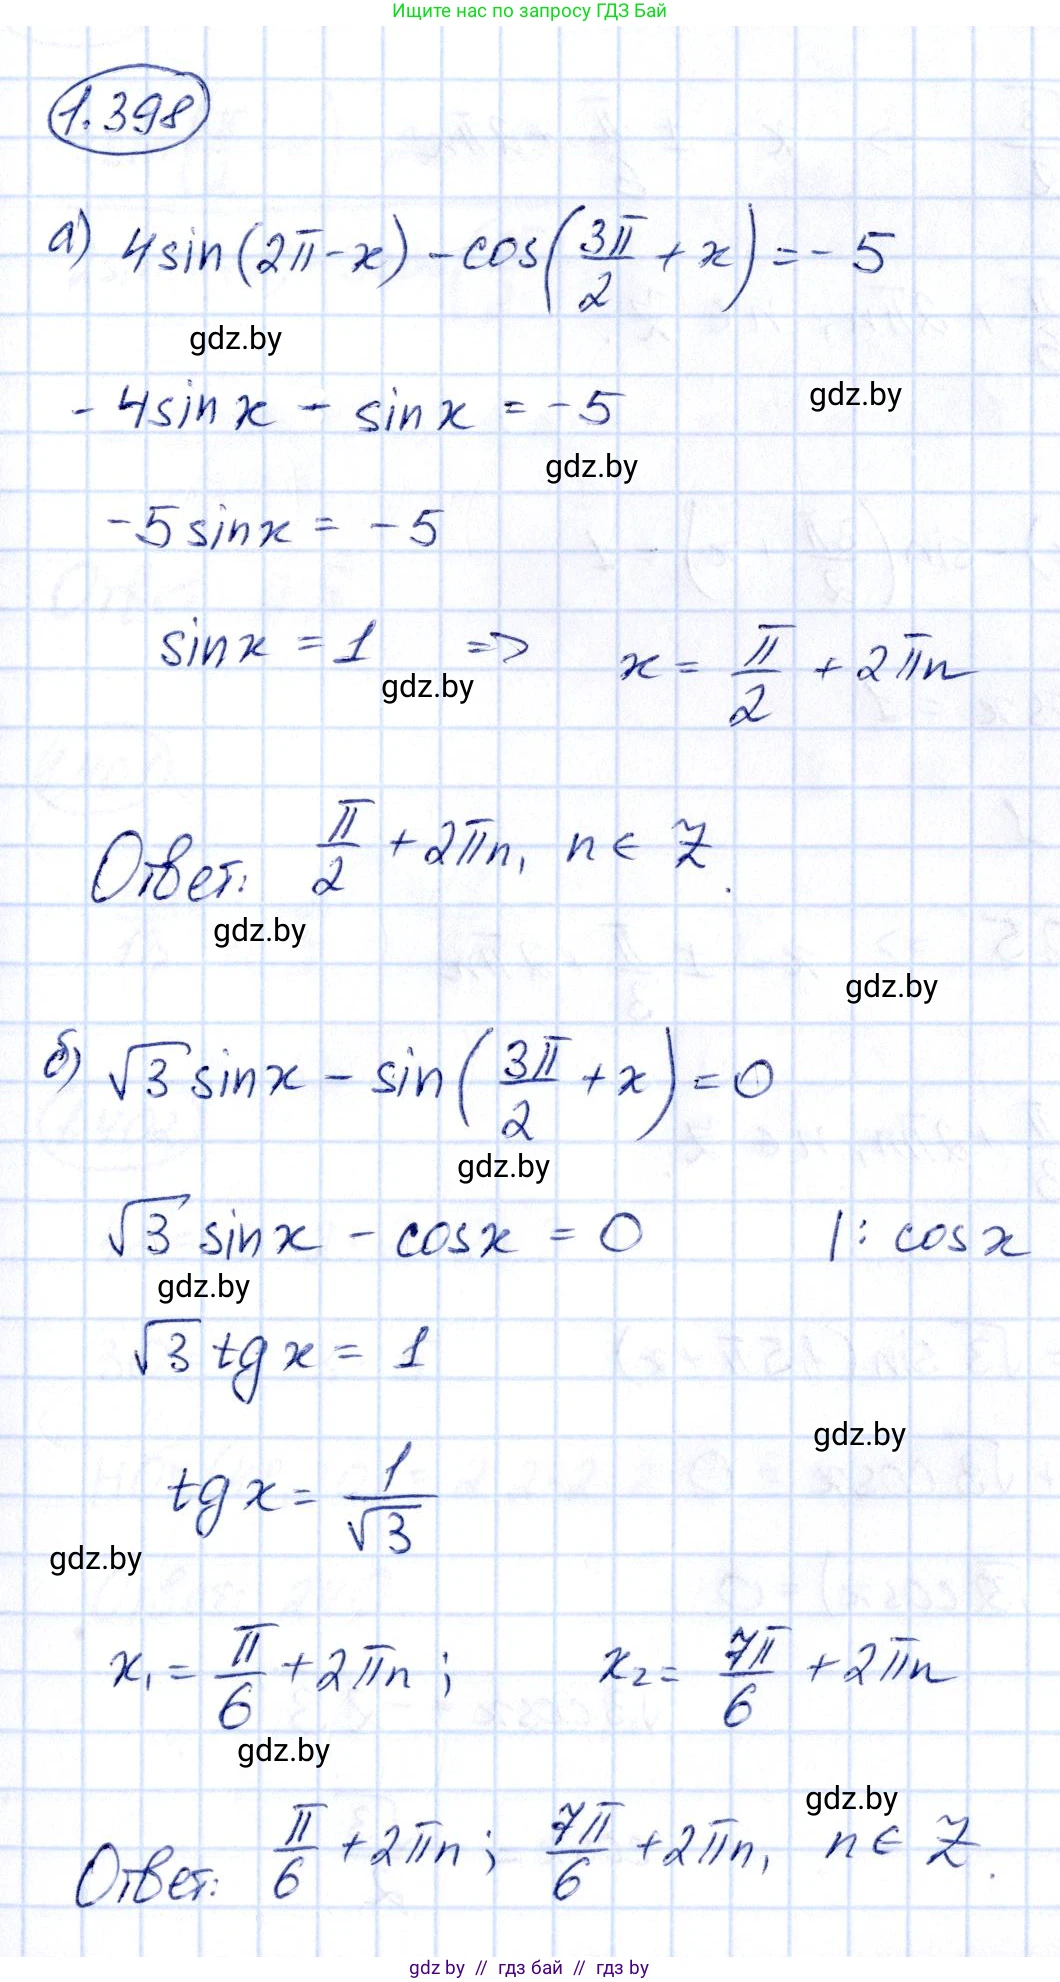 Ищите нас по запросу ГДЗ Бай
1.398
а) 4sin(2π-x) - cos(3π/2 + x) = -5
gdz.by
-4sinx - sinx = -5
gdz.by
gdz.by
-5sinx = -5
sinx = 1 => x = π/2 + 2πn
gdz.by
Ответ: π/2 + 2πn, n ∈ Z.
gdz.by
gdz.by
б) √3 sinx - sin(3π/2 + x) = 0
gdz.by
√3 sinx - cosx = 0 |: cosx
gdz.by
√3 tgx = 1
gdz.by
tgx = 1/√3
gdz.by
x₁ = π/6 + 2πn; x₂ = 7π/6 + 2πn
gdz.by
gdz.by
Ответ: π/6 + 2πn; 7π/6 + 2πn, n ∈ Z.
gdz.by // гдз бай // гдз by